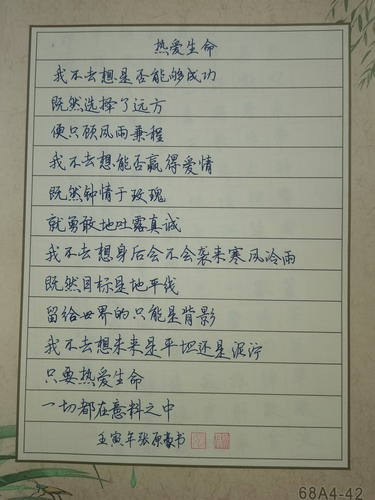 热爱生命
我不去想是否能够成功
既然选择了远方
便只顾风雨兼程
我不去想能否赢得爱情
既然钟情于玫瑰
就勇敢地吐露真诚
我不去想身后会不会袭来寒风冷雨
既然目标是地平线
留给世界的只能是背影
我不去想未来是平坦还是泥泞
只要热爱生命
一切都在意料之中
壬寅年张原豪书
68A4-42